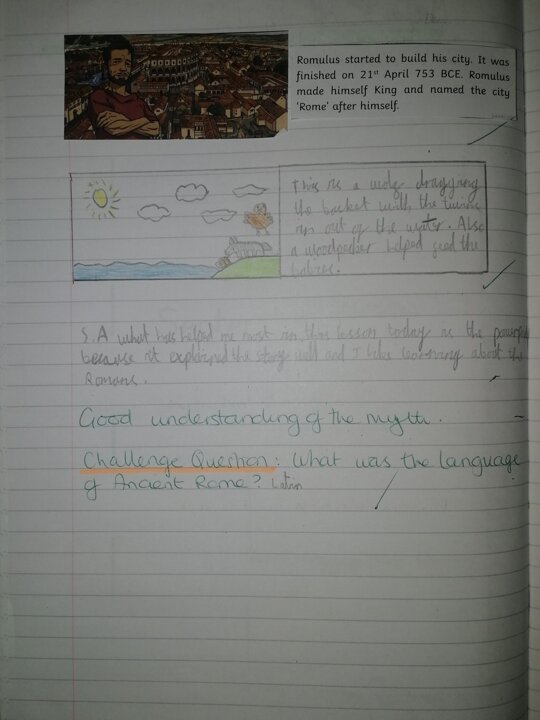 Romulus started to build his city. It was
finished on 21st April 753 BCE. Romulus
made himself King and named the city
'Rome' after himself.
This is a wolf dragging
the basket with the twins
in out of the water. Also
a woodpecker helped feed the
babies.
S.A what has helped me most in this lesson today is the
because it explained the story well and I like learning about the
Romans.
Good understanding of the myth.
Challenge Question: What was the language
of Ancient Rome? Latin